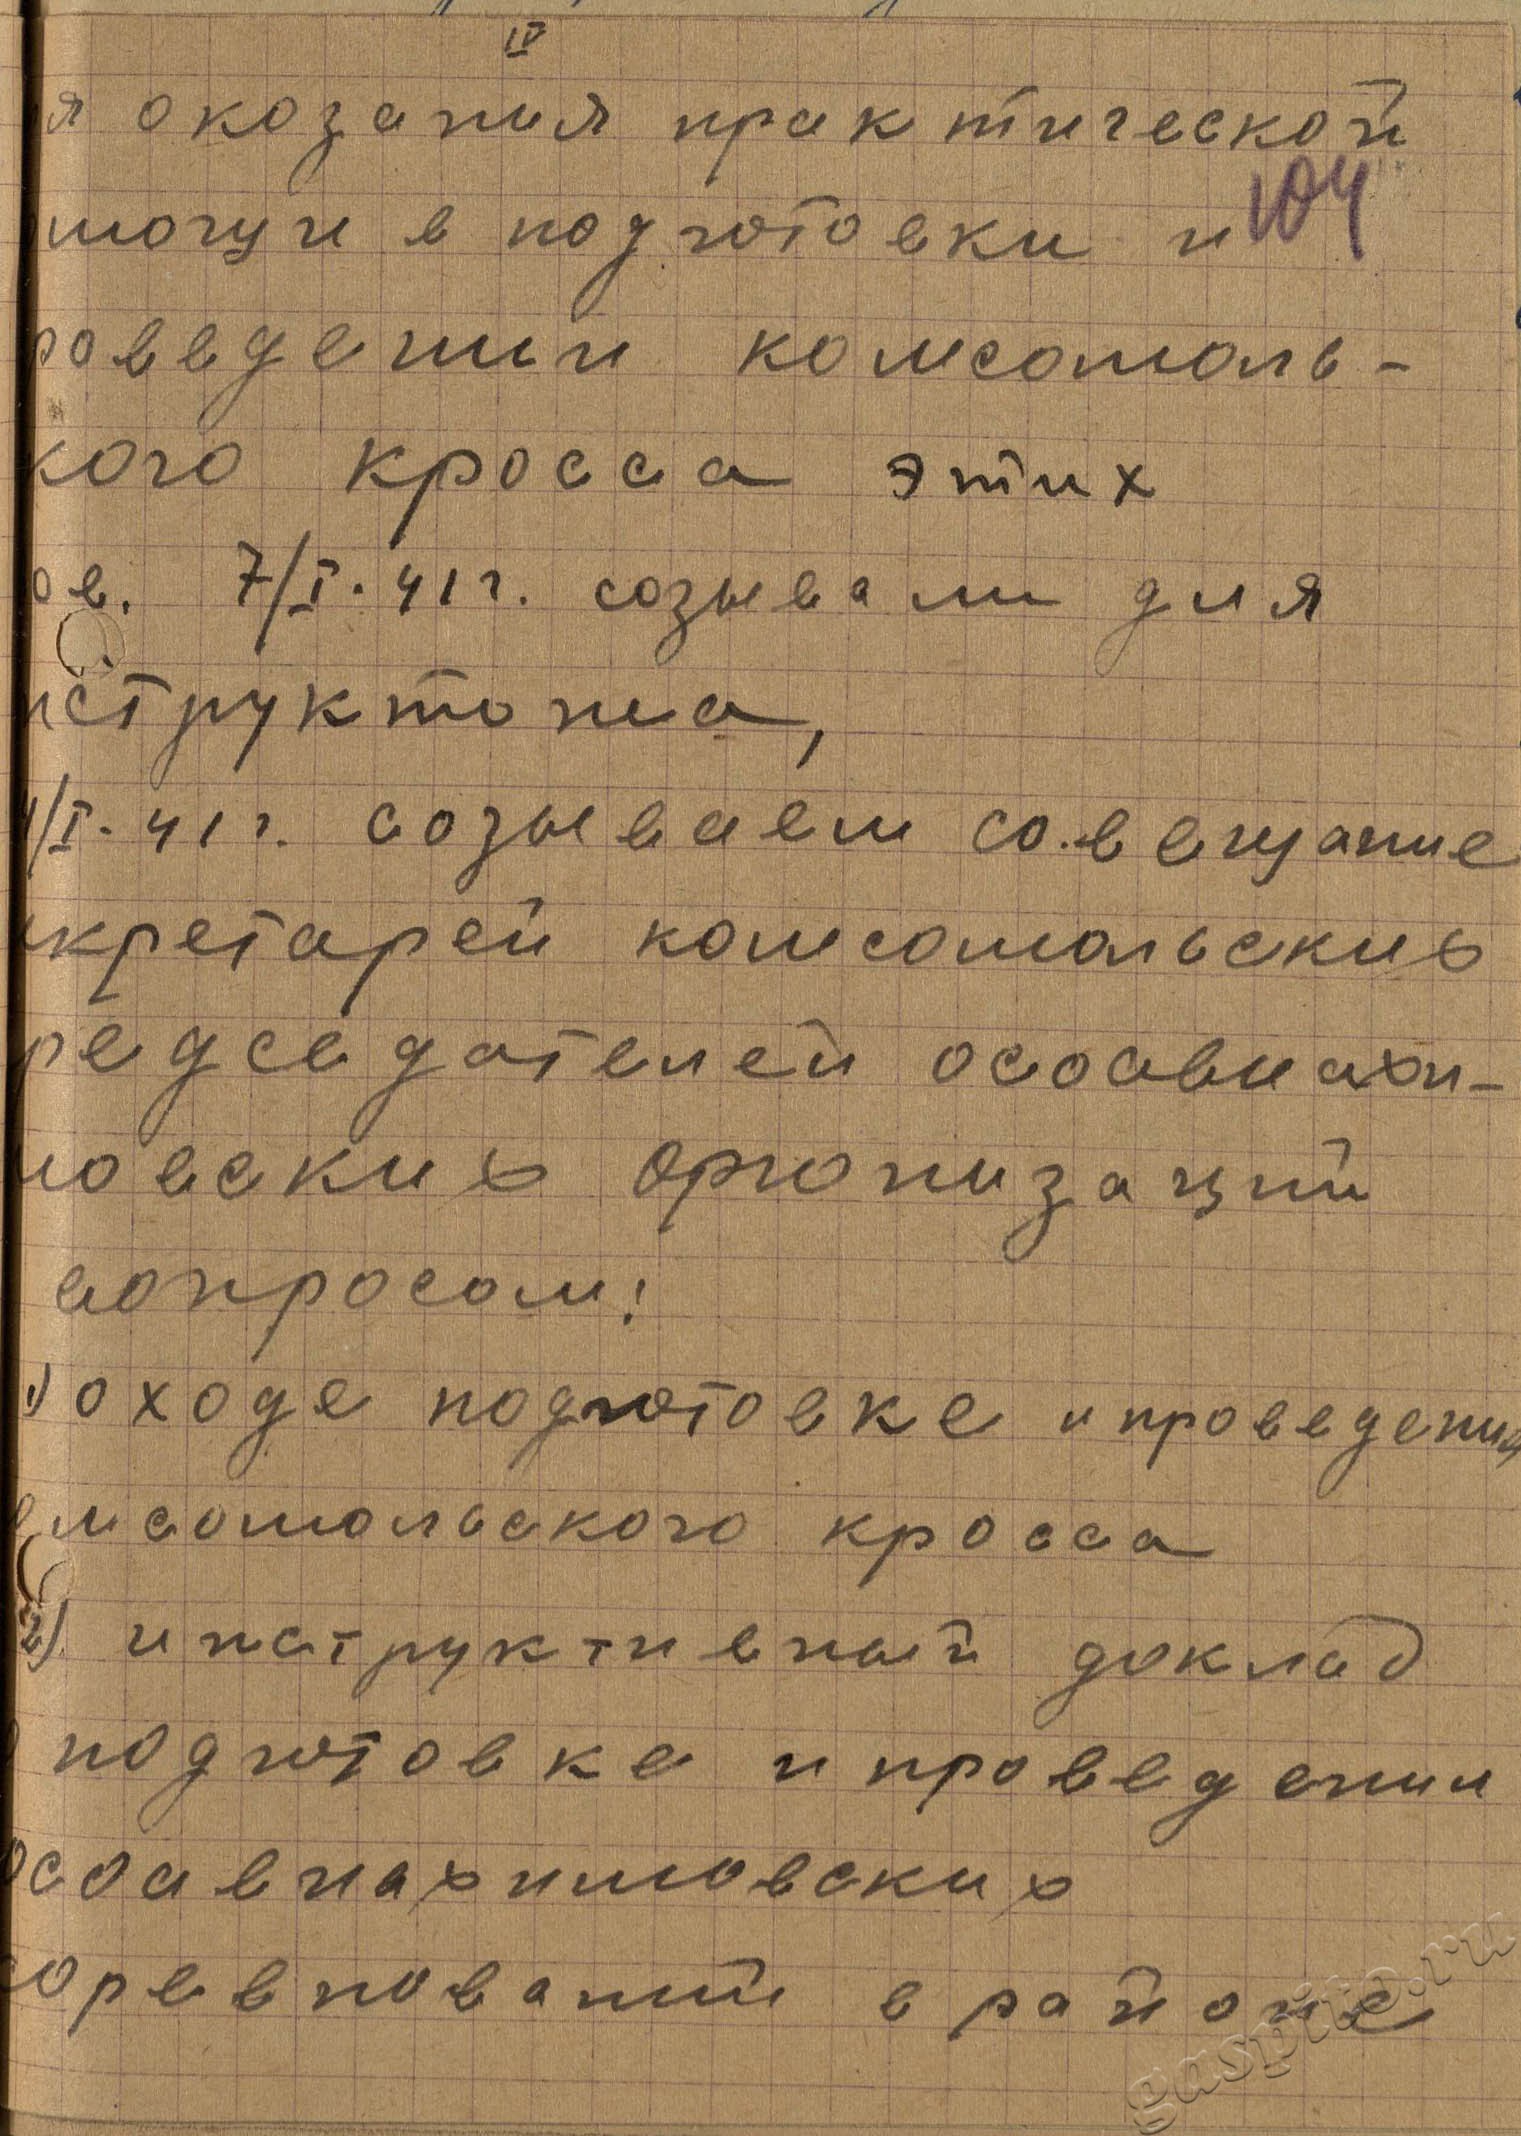 IV
я оказания практической
104
мощи в подготовки и
роведении комсомоль-
кого кросса этих
ов. 7/I.41г. созывали для
иструктожа,
/I.41г. созываем совещание
кретарей комсомольских
редседателей осоавиахи-
мовских организаций
вопросом:
1) оходе подготовке и проведения
омсомольского кросса
2) инструктивный доклад
о подготовке и проведении
осоавиахимовских
соревнований в районе
gaspito.ru